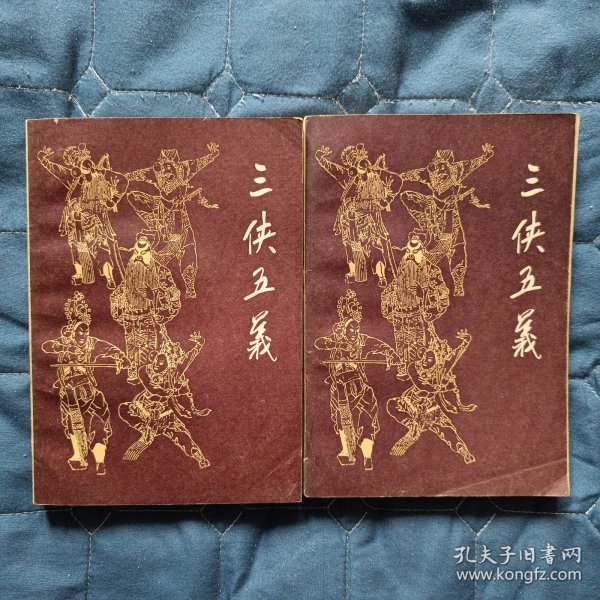 三侠五義
三侠五義
孔夫子旧書网
www.kongfz.com